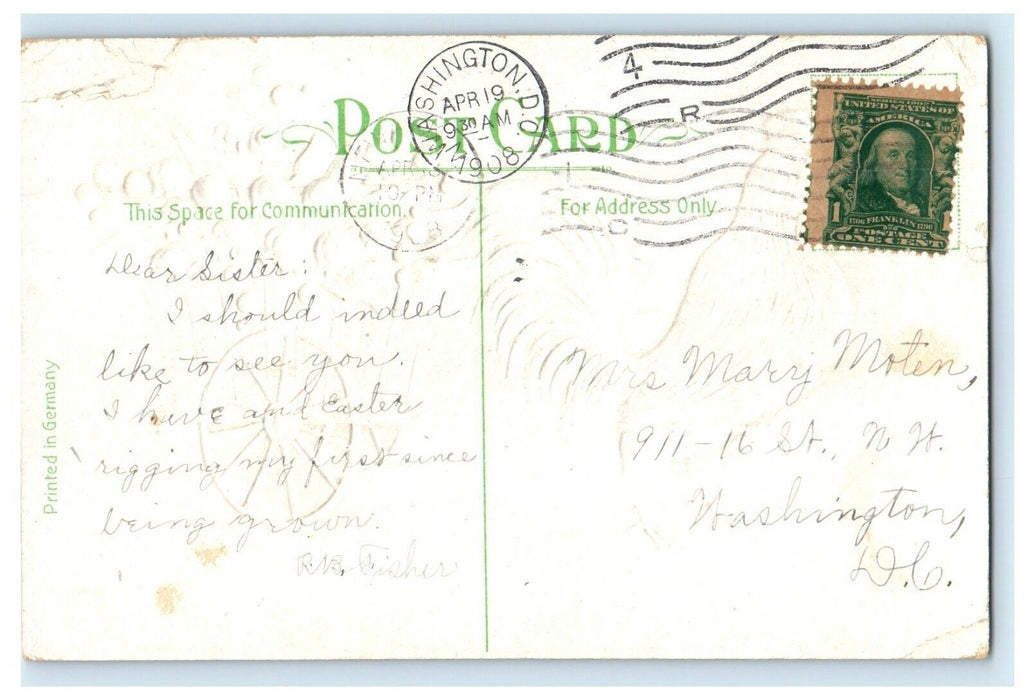 WASHINGTON, D.C.
APR 19
9 30 AM
1908
4
R
POST CARD
SERIES 1902
UNITED STATES OF
AMERICA
1 1706 FRANKLIN 1790 1
POSTAGE
ONE CENT
APR
PM
1908
This Space for Communication.
For Address Only.
Dear Sister:
I should indeed
like to see you.
I have and Easter
rigging my first since
being grown.
R.B. Fisher
Mrs Mary Moten,
911-16 St., N.W.
Washington,
D.C.
Printed in Germany